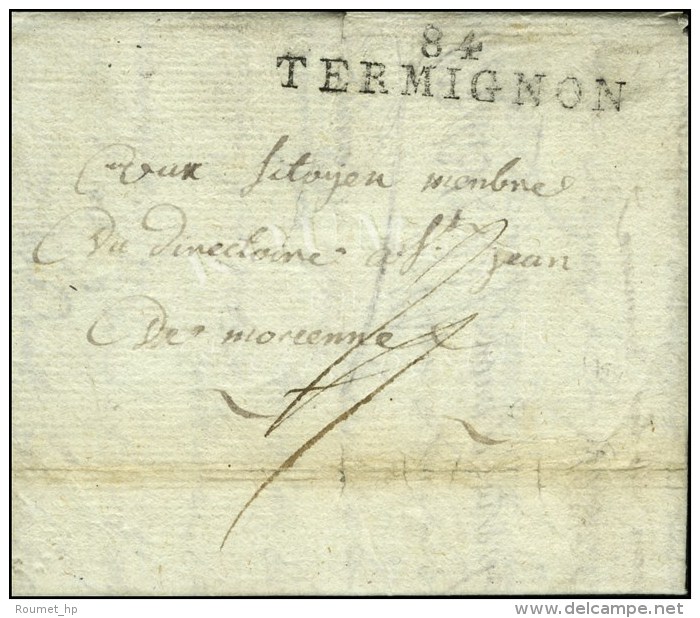 84
TERMIGNON
aux sitoyen menbre
du directoire a St jean
De morienne
Roumet_hp
http://www.delcampe.net